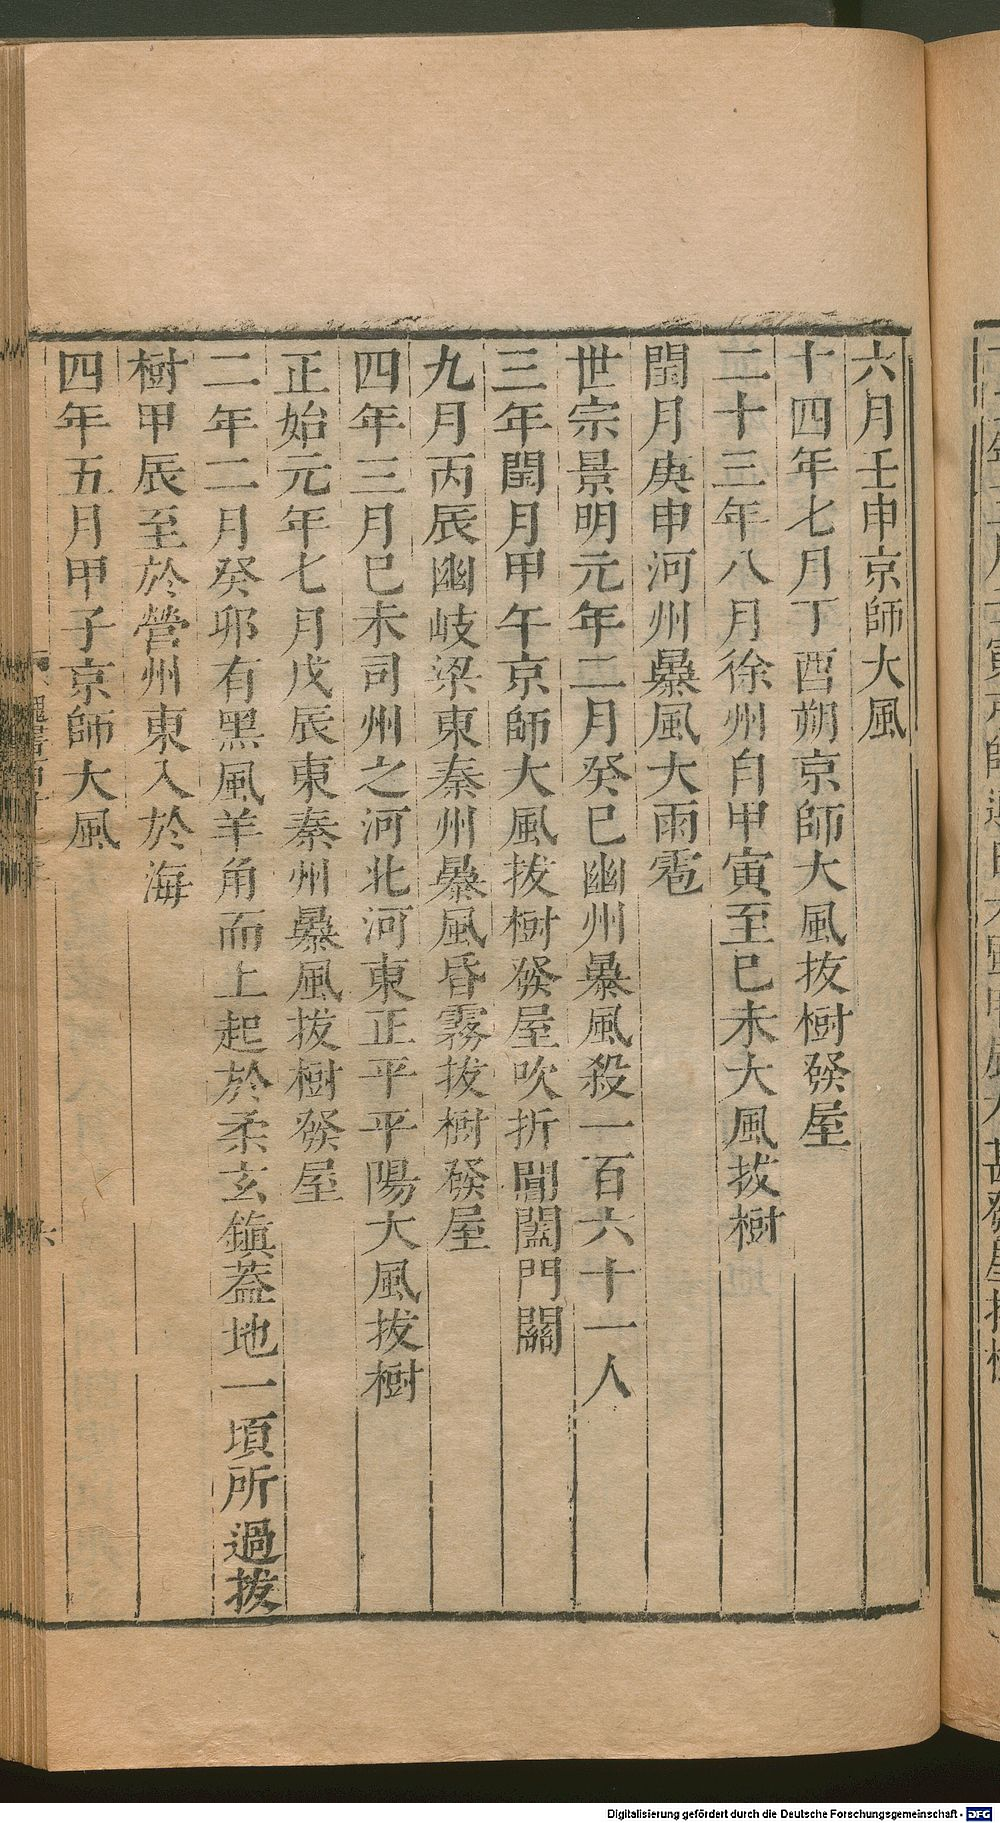 六月壬申京師大風
十四年七月丁酉朔京師大風拔樹發屋
二十三年八月徐州自甲寅至已未大風拔樹
閏月庚申河州暴風大雨雹
世宗景明元年二月癸巳幽州暴風殺一百六十一人
三年閏月甲午京師大風拔樹發屋吹折閶闔門關
九月丙辰幽岐梁東秦州暴風昏霧拔樹發屋
四年三月已未司州之河北河東正平平陽大風拔樹
正始元年七月戊辰東秦州暴風拔樹發屋
二年二月癸卯有黑風羊角而上起於柔玄鎮蓋地一頃所過拔
樹甲辰至於營州東入於海
四年五月甲子京師大風
六
Digitalisierung gefördert durch die Deutsche Forschungsgemeinschaft - DFG